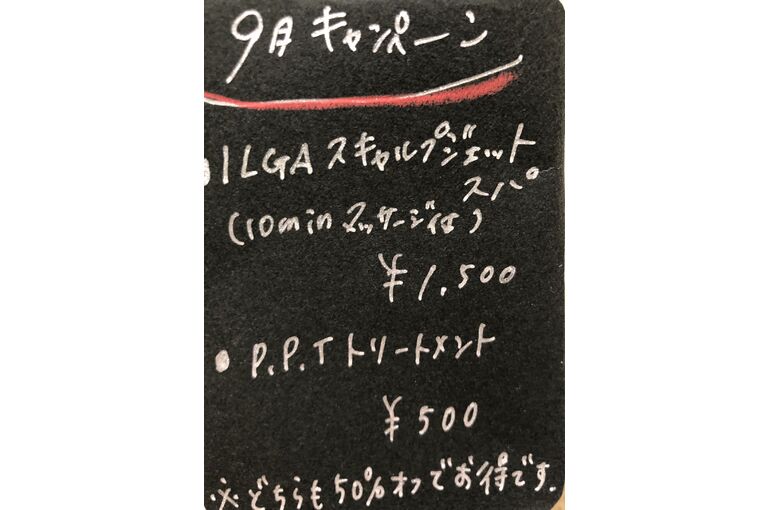 9月キャンペーン
• ILGAスキャルプジェット
スパ
(10minマッサージ付)
¥1,500
• P.P.Tトリートメント
¥500
※どちらも50%オフでお得です.